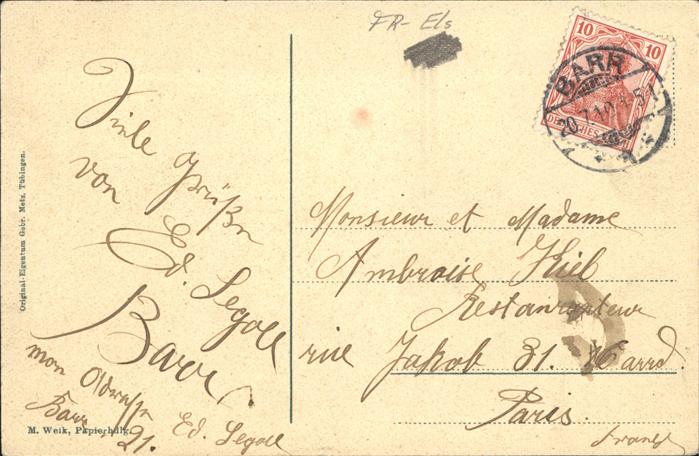 FR- Els
10 10
DEUTSCHES REICH
BARR
20.7.10.
Viele Grüße
von
Ed. Segoll
Barr
mon
Barr 21.
Ed. Segoll
Monsieur et Madame
Ambroise Kiel
Restaurateur
rue Jakob 31.
Paris.
Original-Eigentum Gebr. Metz, Tübingen.
M. Weik, Papierhdlg.